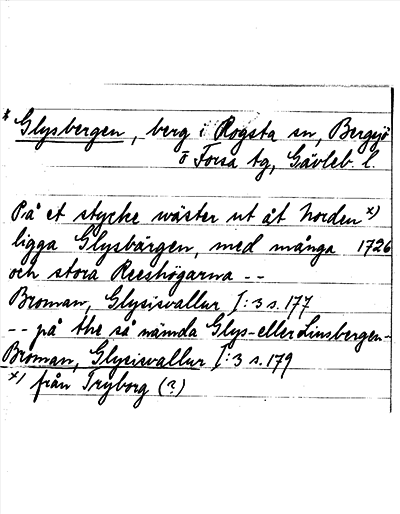 * Glysbergen, berg i Rogsta sn, Bergsjö
o Forsa tg, Gävleb. l.
På et stycke wäster ut åt Norden x)
ligga Glysbärgen, med många 1726
och stora Reeshögarna --
Broman, Glysisvallur I:3 s. 177
-- på the så nämda Glys- eller Linsbergen--
Broman, Glysisvallur I:3 s. 179
x) från Tryborg (?)